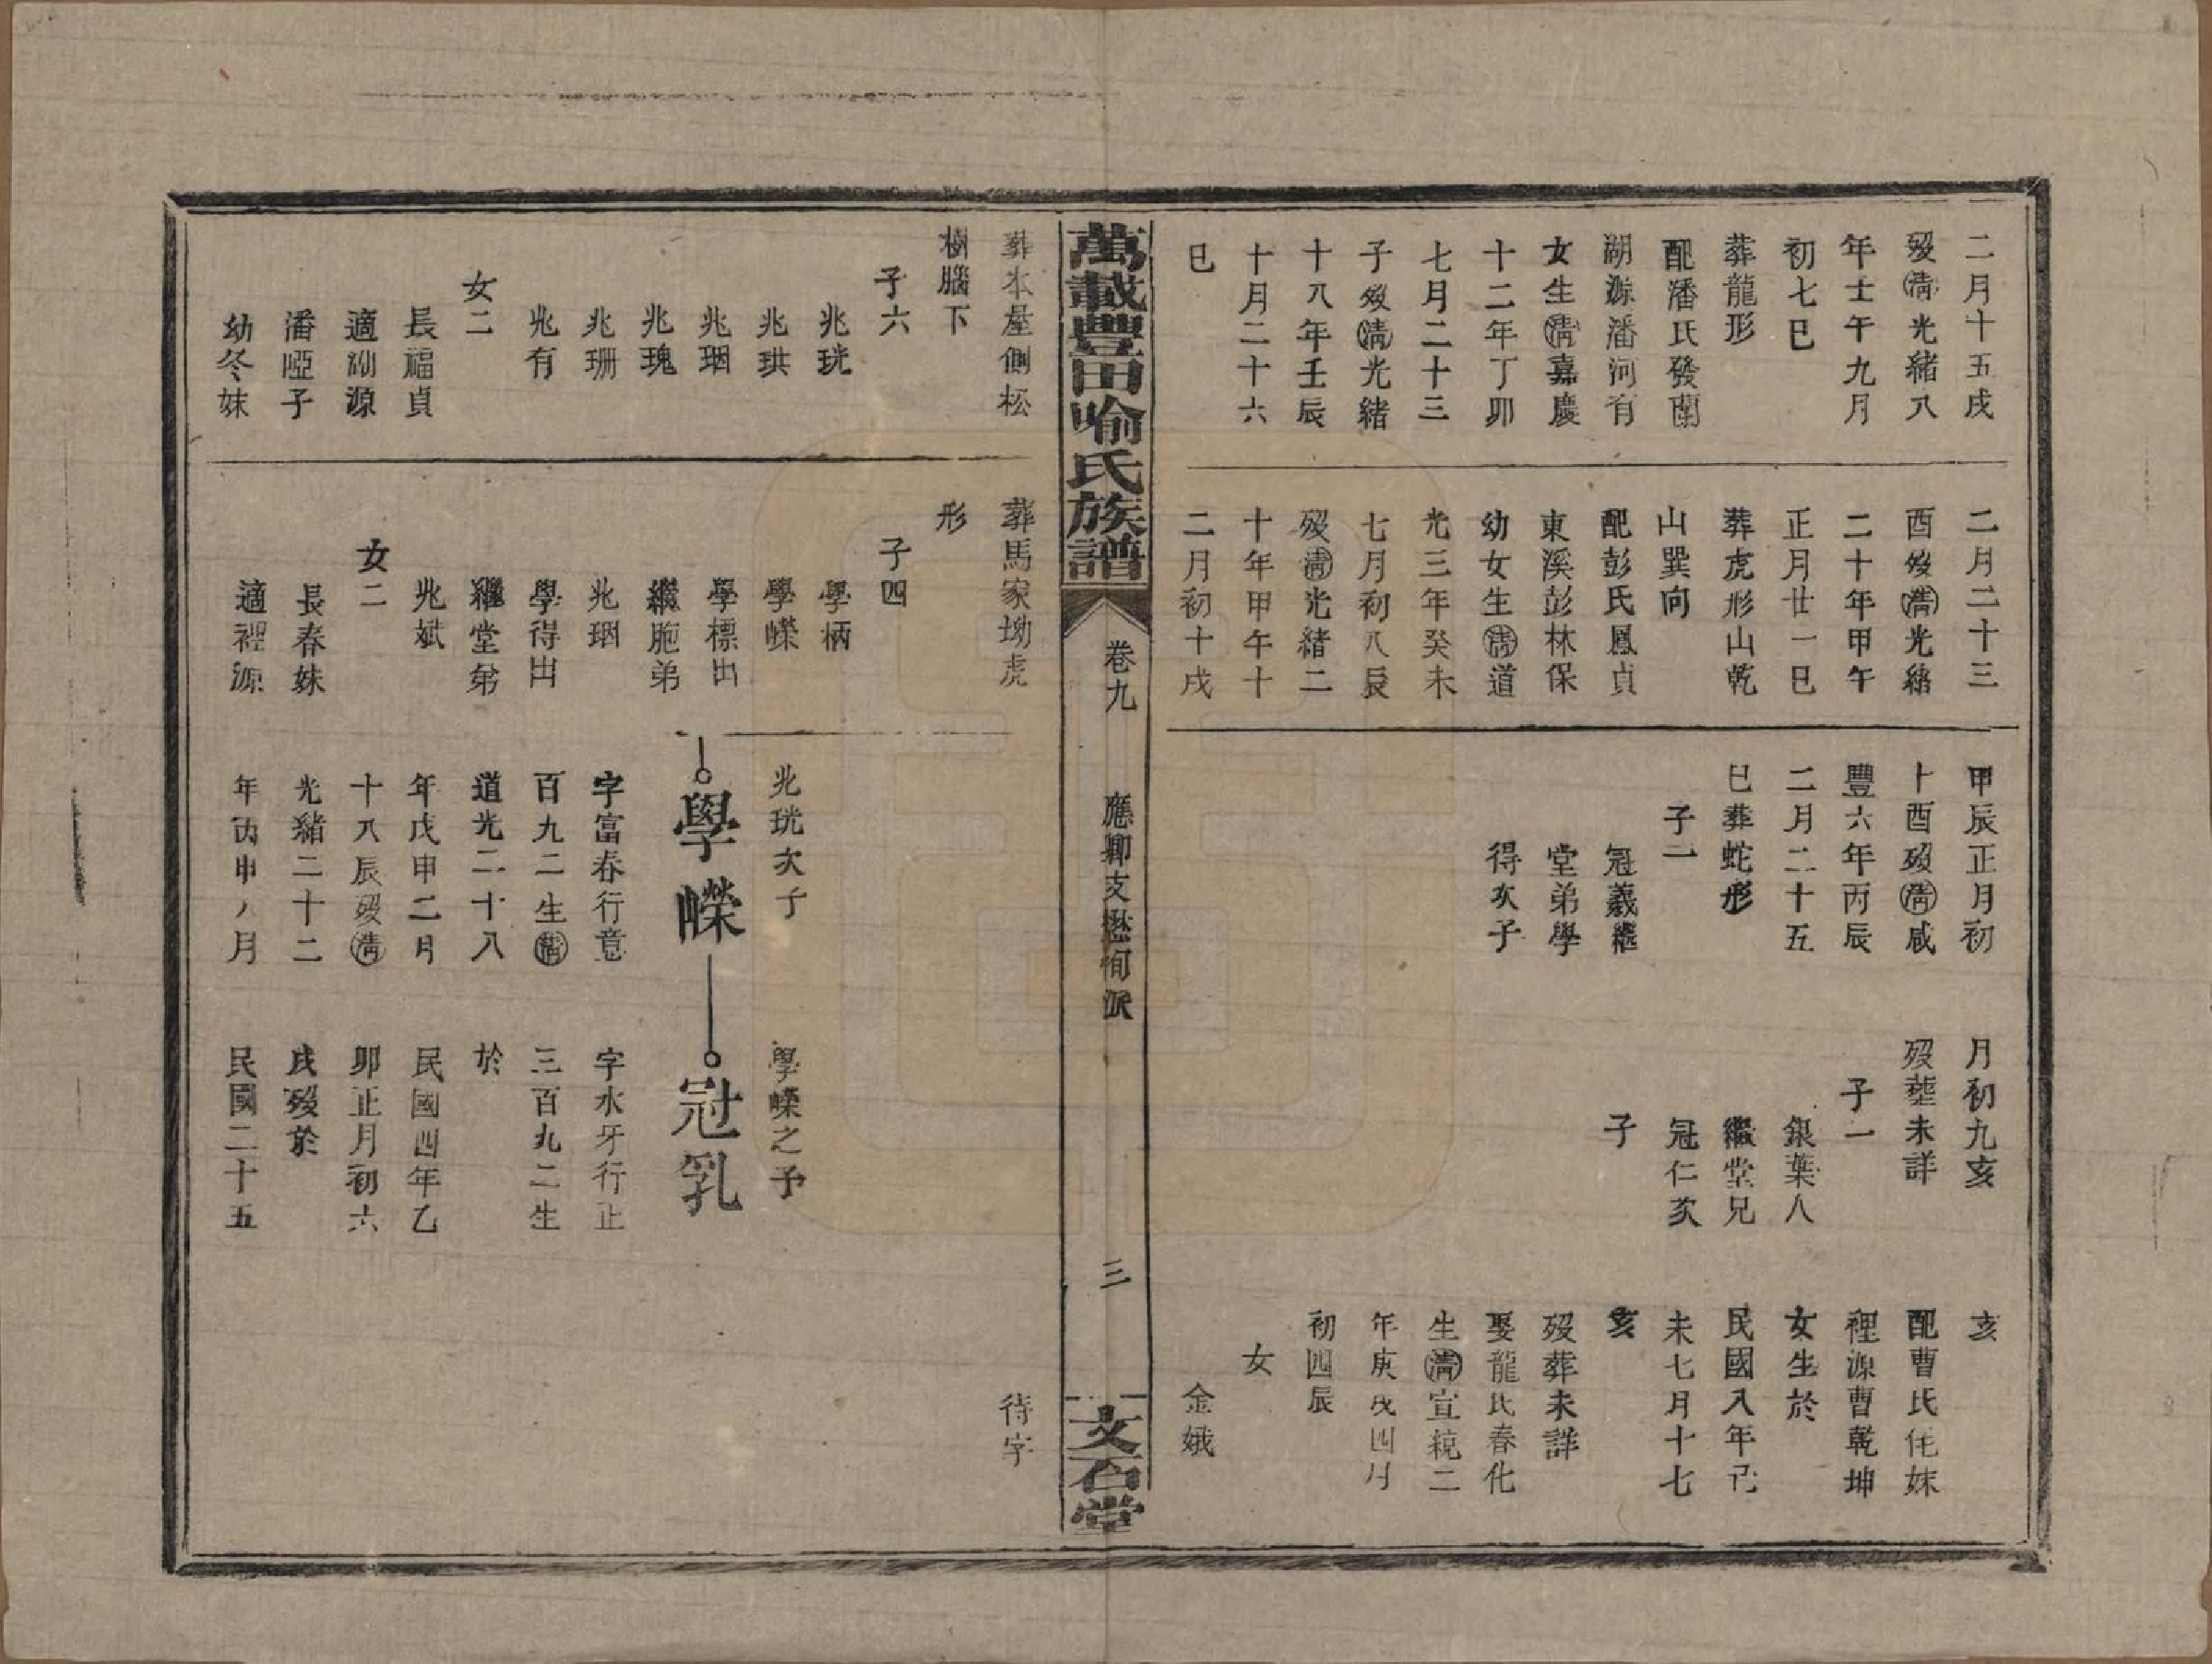 二月十五戌
歿清光緒八
年壬午九月
初七巳
葬龍形
配潘氏發蘭
湖源潘河有
女生清嘉慶
十二年丁卯
七月二十三
子歿清光緒
十八年壬辰
十月二十六
巳
二月二十三
酉歿清光緒
二十年甲午
正月廿一巳
葬虎形山乾
山巽向
配彭氏鳳貞
東溪彭林保
幼女生清道
光三年癸未
七月初八辰
歿清光緒二
十年甲午十
二月初十戌
甲辰正月初
十酉歿清咸
豐六年丙辰
二月二十五
巳葬蛇形
子二
冠義繼
堂弟學
得次子
月初九亥
歿塟未詳
子一
銀葉人
繼堂兄
冠仁次
子
亥
配曹氏伲妹
裡源曹乾坤
女生於
民國八年己
未七月十七
亥
歿葬未詳
娶龍氏春化
生清宣統二
年庚戌四月
初四辰
女
金娥
萬載豐田喻氏族譜
卷九
應卿支懋恂派
三
文石堂
葬本屋側松
樹腦下
子六
兆珖
兆珙
兆珚
兆瑰
兆珊
兆有
女二
長福貞
適湖源
潘啞子
幼冬妹
葬馬家坳虎
形
子四
學柄
學嶸
學標出
繼胞弟
兆珚
學得出
繼堂弟
兆斌
女二
長春妹
適裡源
兆珖次子
學嶸
字富春行意
百九二生清
道光二十八
年戊申二月
十八辰歿清
光緒二十二
年丙申八月
學嶸之子
冠乳
字水牙行正
三百九二生
於
民國四年乙
卯正月初六
戌歿於
民國二十五
待字